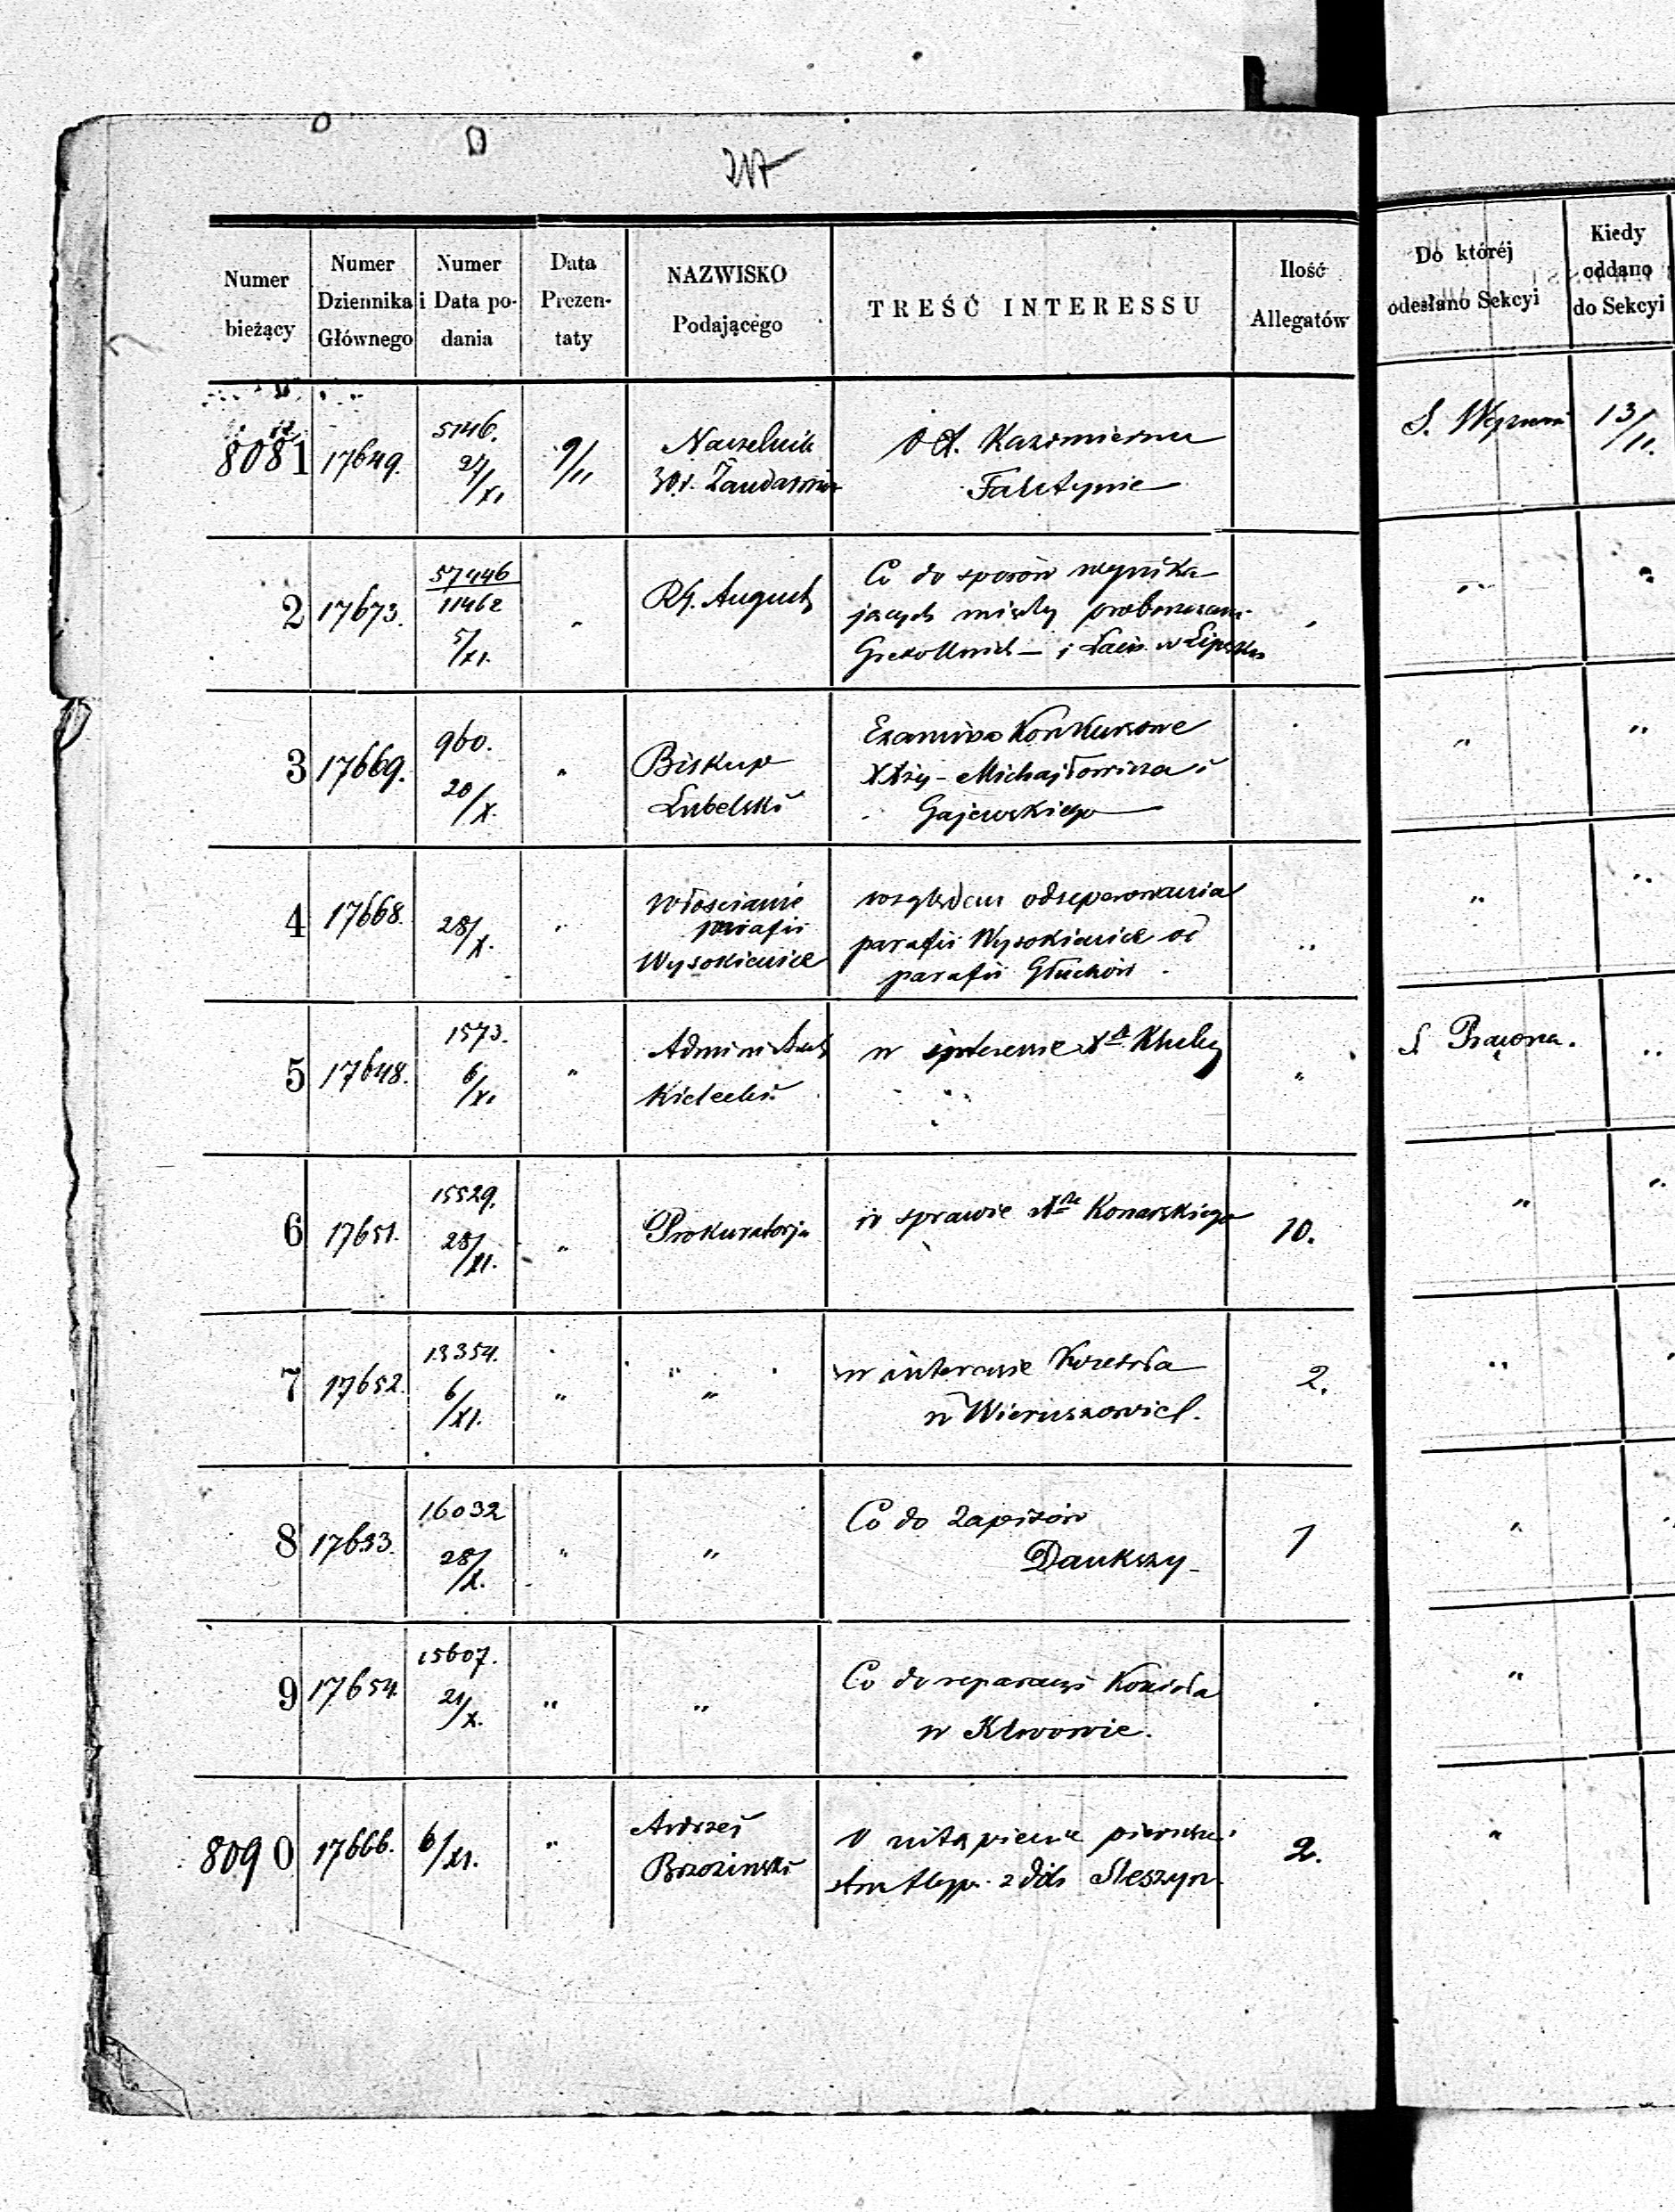 217
Numer bieżący
Numer Dziennika Głównego
Numer i Data podania
Data Prezentaty
NAZWISKO Podającego
TREŚĆ INTERESSU
Ilość Allegatów
Do któréj odesłano Sekcyi
Kiedy oddano do Sekcyi
8081 17649. 5146. 9/11 Naczelnik
Żandarmów
Kazimierzu
13/11.
2 17673. 57446
11462
5/XI. " August
Co do sporów wynika
jących między proboszczami
i Łaciń. w Lipsku
3 17669. 960.
20/X. " Biskup
Lubelski
Examina Konkursowe
XXży Michajłowicza i
Gajewskiego
4 17668. 28/X. " Włościanie
parafii
Wysokienice
względem odseparowania
parafii Wysokienice od
parafii Głuchów
5 17648. 1573.
6/XI. "
Kielecki
w interesie Xa
" S. Prawna. "
6 17651. 15529.
28/XI. " Prokuratorja
w sprawie Xa Konarskiego
10. "
7 17652. 13354.
6/XI. " "
w interesie Kościoła
w
2. "
8 17653. 16032
28/X. " "
Co do zapisów
Daukszy
1 "
9 17654. 15607.
21/X. " "
Co do reparacyi Kościoła
w Klwowie.
"
8090 17666. 6/XI. " Andrzej
Brzozinski
2. "